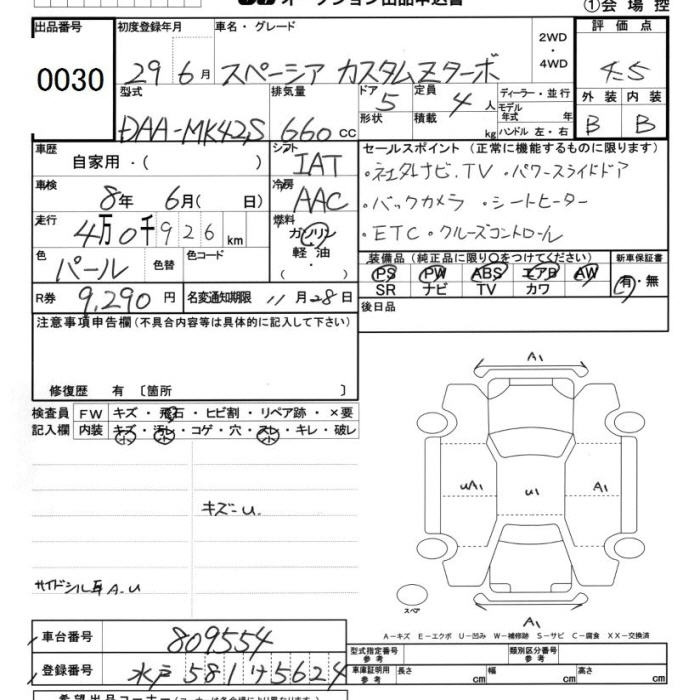 オークション出品申込書
①会場控
出品番号 0030
初度登録年月 29 6月
車名・グレード スペーシア カスタムZターボ
2WD・4WD
評価点 4.5
外装 B 内装 B
型式 DAA-MK42S
排気量 660 cc
ドア 5 形状
定員 4人 積載 kg
ディーラー・並行
モデル年式 年式
ハンドル 左・右
車歴 自家用・( )
シフト IAT
セールスポイント (正常に機能するものに限ります)
・社外ナビ.TV ・パワースライドドア
・バックカメラ ・シートヒーター
・ETC ・クルーズコントロール
車検 8年 6月( 日)
冷房 AAC
走行 4万0千926km
燃料 ガソリン・軽油・( )
色 パール 色替 色コード
装備品 (純正品に限り○をつけてください)
PS PW ABS エアB AW
SR ナビ TV カワ
新車保証書 有・無
R券 9,290円
名変通知期限 11月28日
後日品
注意事項申告欄 (不具合内容等は具体的に記入して下さい)
修復歴 有 〔箇所 〕
検査員記入欄
FW キズ・飛石・ヒビ割・リペア跡・×要
内装 キズ・汚レ・コゲ・穴・スレ・キレ・破レ
小 小 小
キズ=U.
サイドシル耳 A.U
A1
UA1 U1 A1
A1
スペア
A-キズ E-エクボ U-凹み W-補修跡 S-サビ C-腐食 XX-交換済
車台番号 809554
登録番号 水戸 581 け 5624
型式指定番号 参考
類別区分番号 参考
車庫証明用 参考 長さ cm 幅 cm 高さ cm
希望出品コーナー